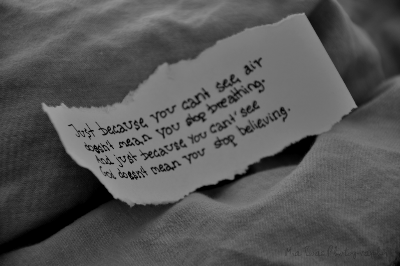 Just because you cant see air
doesn't mean you stop breathing.
And just because you can't see
God doesn't mean you stop believing.